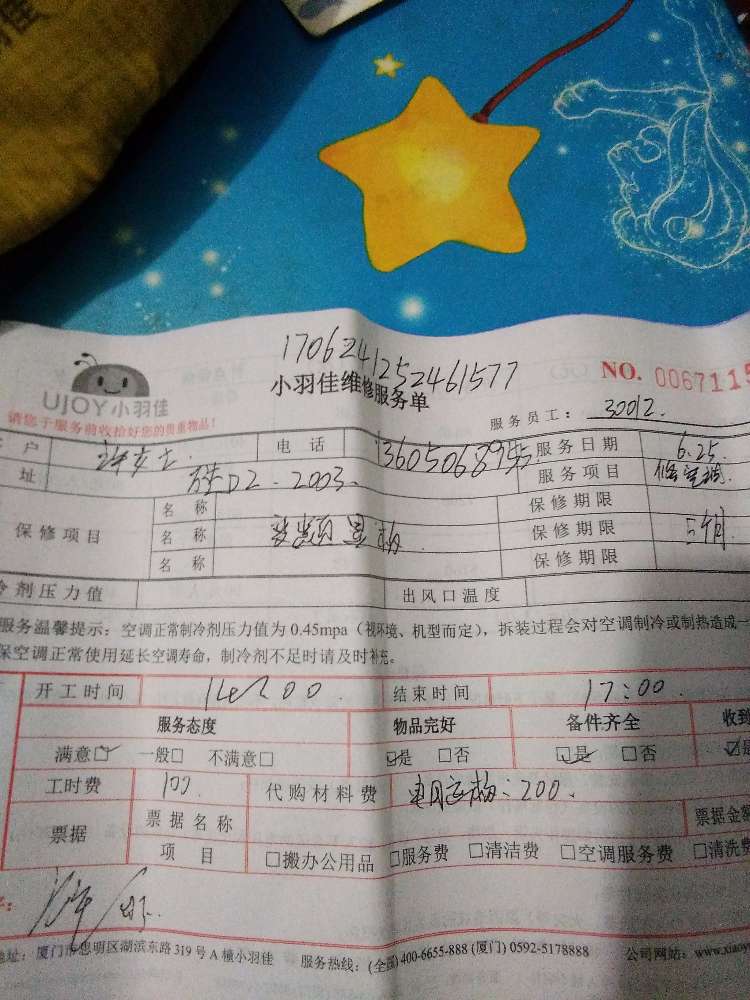 1706241252461577
小羽佳维修服务单
NO. 0067115
UJOY小羽佳
请您于服务前收拾好您的贵重物品!
服务员工: 30012.
户 女士. 电话 13605068955 服务日期 6.25
址 D2-2003. 服务项目 修空调
保修项目 名称 保修期限
名称 变频 保修期限 5个月
名称 保修期限
冷剂压力值 出风口温度
服务温馨提示: 空调正常制冷剂压力值为0.45mpa (视环境、机型而定), 拆装过程会对空调制冷或制热造成一
保空调正常使用延长空调寿命, 制冷剂不足时请及时补充。
开工时间 结束时间 17:00
服务态度 物品完好 备件齐全 收到
满意□ 一般□ 不满意□ □是 □否 □是 □否 □是
工时费 100. 代购材料费 :200.
票据 票据名称 票据金额
项目 □搬办公用品 □服务费 □清洁费 □空调服务费 □清洗费
地址: 厦门市思明区湖滨东路319号A幢小羽佳 服务热线: (全国) 400-6655-888 (厦门) 0592-5178888 公司网站: www.xiaoy